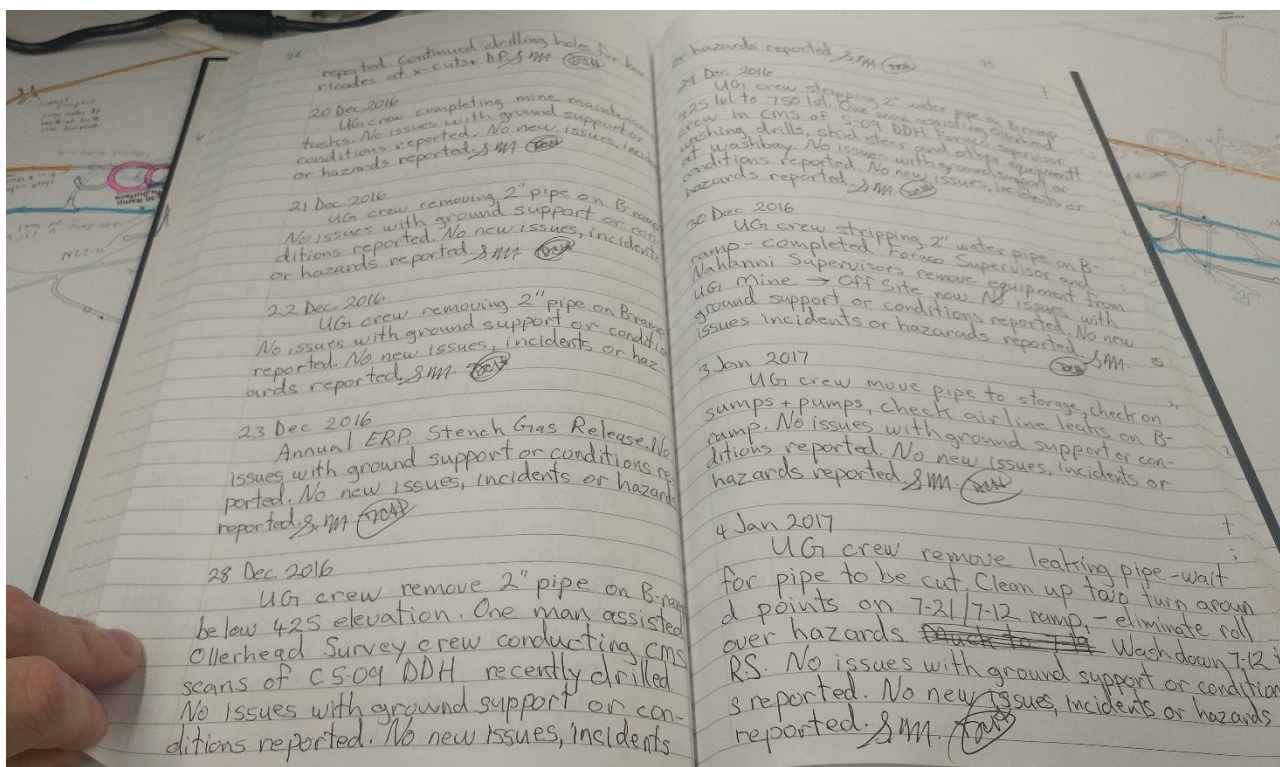 94
reported continued drilling holes for
ricades at x-cuts. DP S.M
20 Dec 2016
UG crew completing mine maintenance
tasks. No issues with ground support or
conditions reported. No new issues, incide
or hazards reported. S.M
21 Dec. 2016
UG crew removing 2" pipe on B-ramp
No issues with ground support or con-
ditions reported. No new issues, incidents
or hazards reported. S.M
22 Dec. 2016
UG crew removing 2" pipe on B ramp
No issues with ground support or conditio
reported. No new issues, incidents or haz-
ards reported. S.M.
23 Dec 2016
Annual E.R.P. Stench Gas Release. No
issues with ground support or conditions re
ported. No new issues, incidents or hazards
reported. S.M
28 Dec. 2016
UG crew remove 2" pipe on B-ramp
below 425 elevation. One man assisted
Ollerhead Survey crew conducting CMS
scans of C5-09 DDH recently drilled.
No issues with ground support or con-
ditions reported. No new issues, incidents
95
or hazards reported. S.M
29 Dec 2016
UG crew stripping 2" water pipe on B-ramp
425 lvl to 750 lvl. One man assisting Ollerhead
crew in CMS of 5-09 DDH. Foraco supervisor
washing drills, skid steer and other equipment
at washbay. No issues with ground support or
conditions reported. No new issues, incidents or
hazards reported. S.M.
30 Dec 2016
UG crew stripping 2" water pipe on B-
ramp - completed. Foraco Supervisor and
Nahanni Supervisors remove equipment from
UG Mine → Off Site now. No issues with
ground support or conditions reported. No new
issues incidents or hazarads reported. S.M.
3 Jan 2017
UG crew move pipe to storage, check on
sumps + pumps, check air line leaks on B-
ramp. No issues with ground support or con-
ditions reported. No new issues, incidents or
hazards reported. S.M.
4 Jan 2017
UG crew remove leaking pipe - wait
for pipe to be cut. Clean up two turn aroun
d points on 7-21/7-12 ramp, - eliminate roll
over hazards. Wash down 7-12
R.S. No issues with ground support or condition
s reported. No new issues, incidents or hazards
reported. S.M.